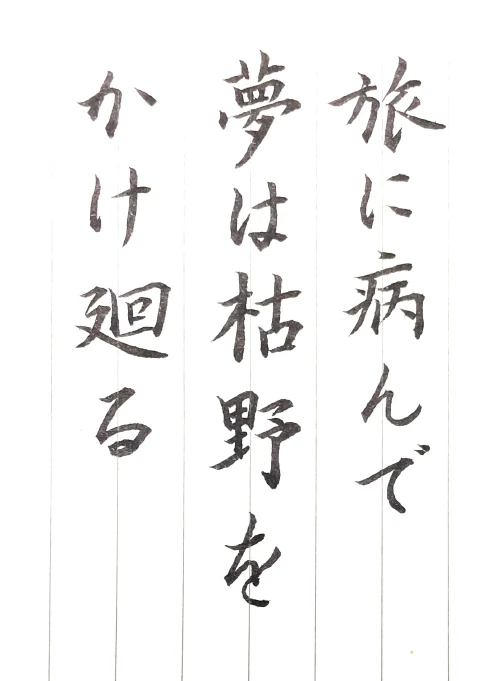 旅に病んで
夢は枯野を
かけ廻る